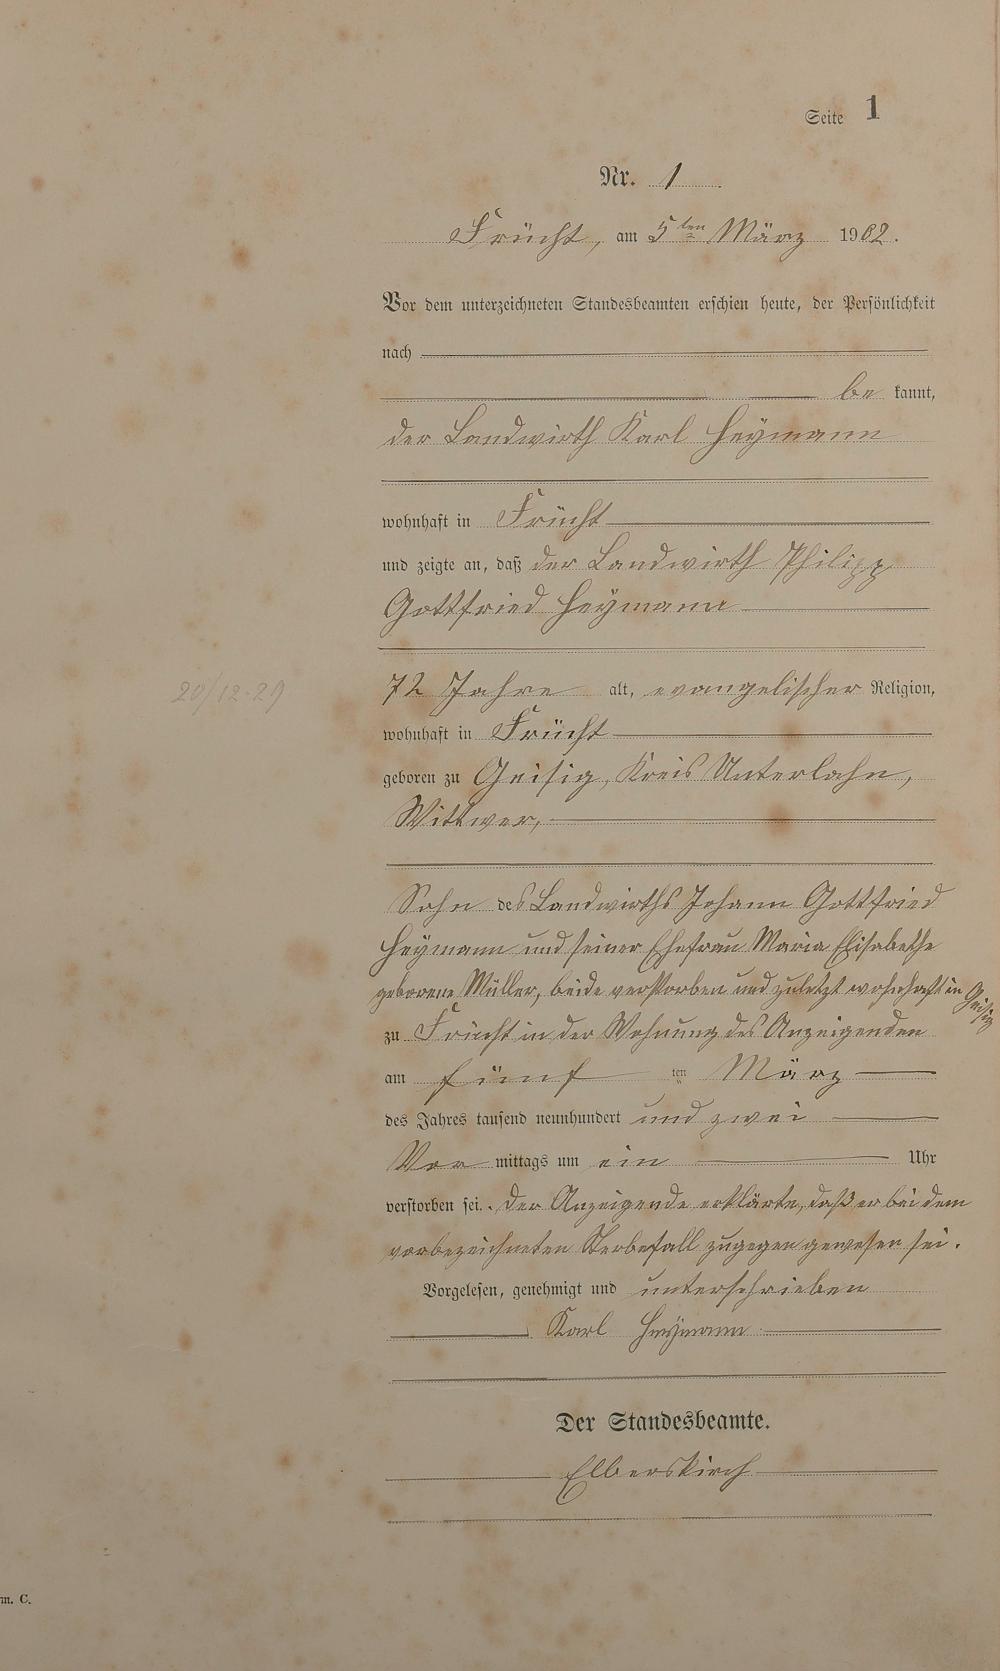 Seite 1
Nr. 1
Frücht, am 5ten März 1902.
Vor dem unterzeichneten Standesbeamten erschien heute, der Persönlichkeit
nach
be kannt,
der Landwirth Karl Heymann
wohnhaft in Frücht
und zeigte an, daß der Landwirth Philipp
Gottfried Heymann
72 Jahre alt, evangelischer Religion,
20/12.29
wohnhaft in Frücht
geboren zu Geisig, Kreis Unterlahn,
Wittwer,
Sohn des Landwirths Johann Gottfried
Heymann und seiner Ehefrau Maria Elisabethe
geborene Müller, beide verstorben und zuletzt wohnhaft in Geisig
zu Frücht in der Wohnung des Anzeigenden
am fünf ten März
des Jahres tausend neunhundert und zwei
Vor mittags um ein Uhr
verstorben sei. Der Anzeigende erklärte, daß er bei dem
vorbezeichneten Sterbefall zugegen gewesen sei.
Vorgelesen, genehmigt und unterschrieben
Karl Heymann
Der Standesbeamte.
Elberskirch
m. C.